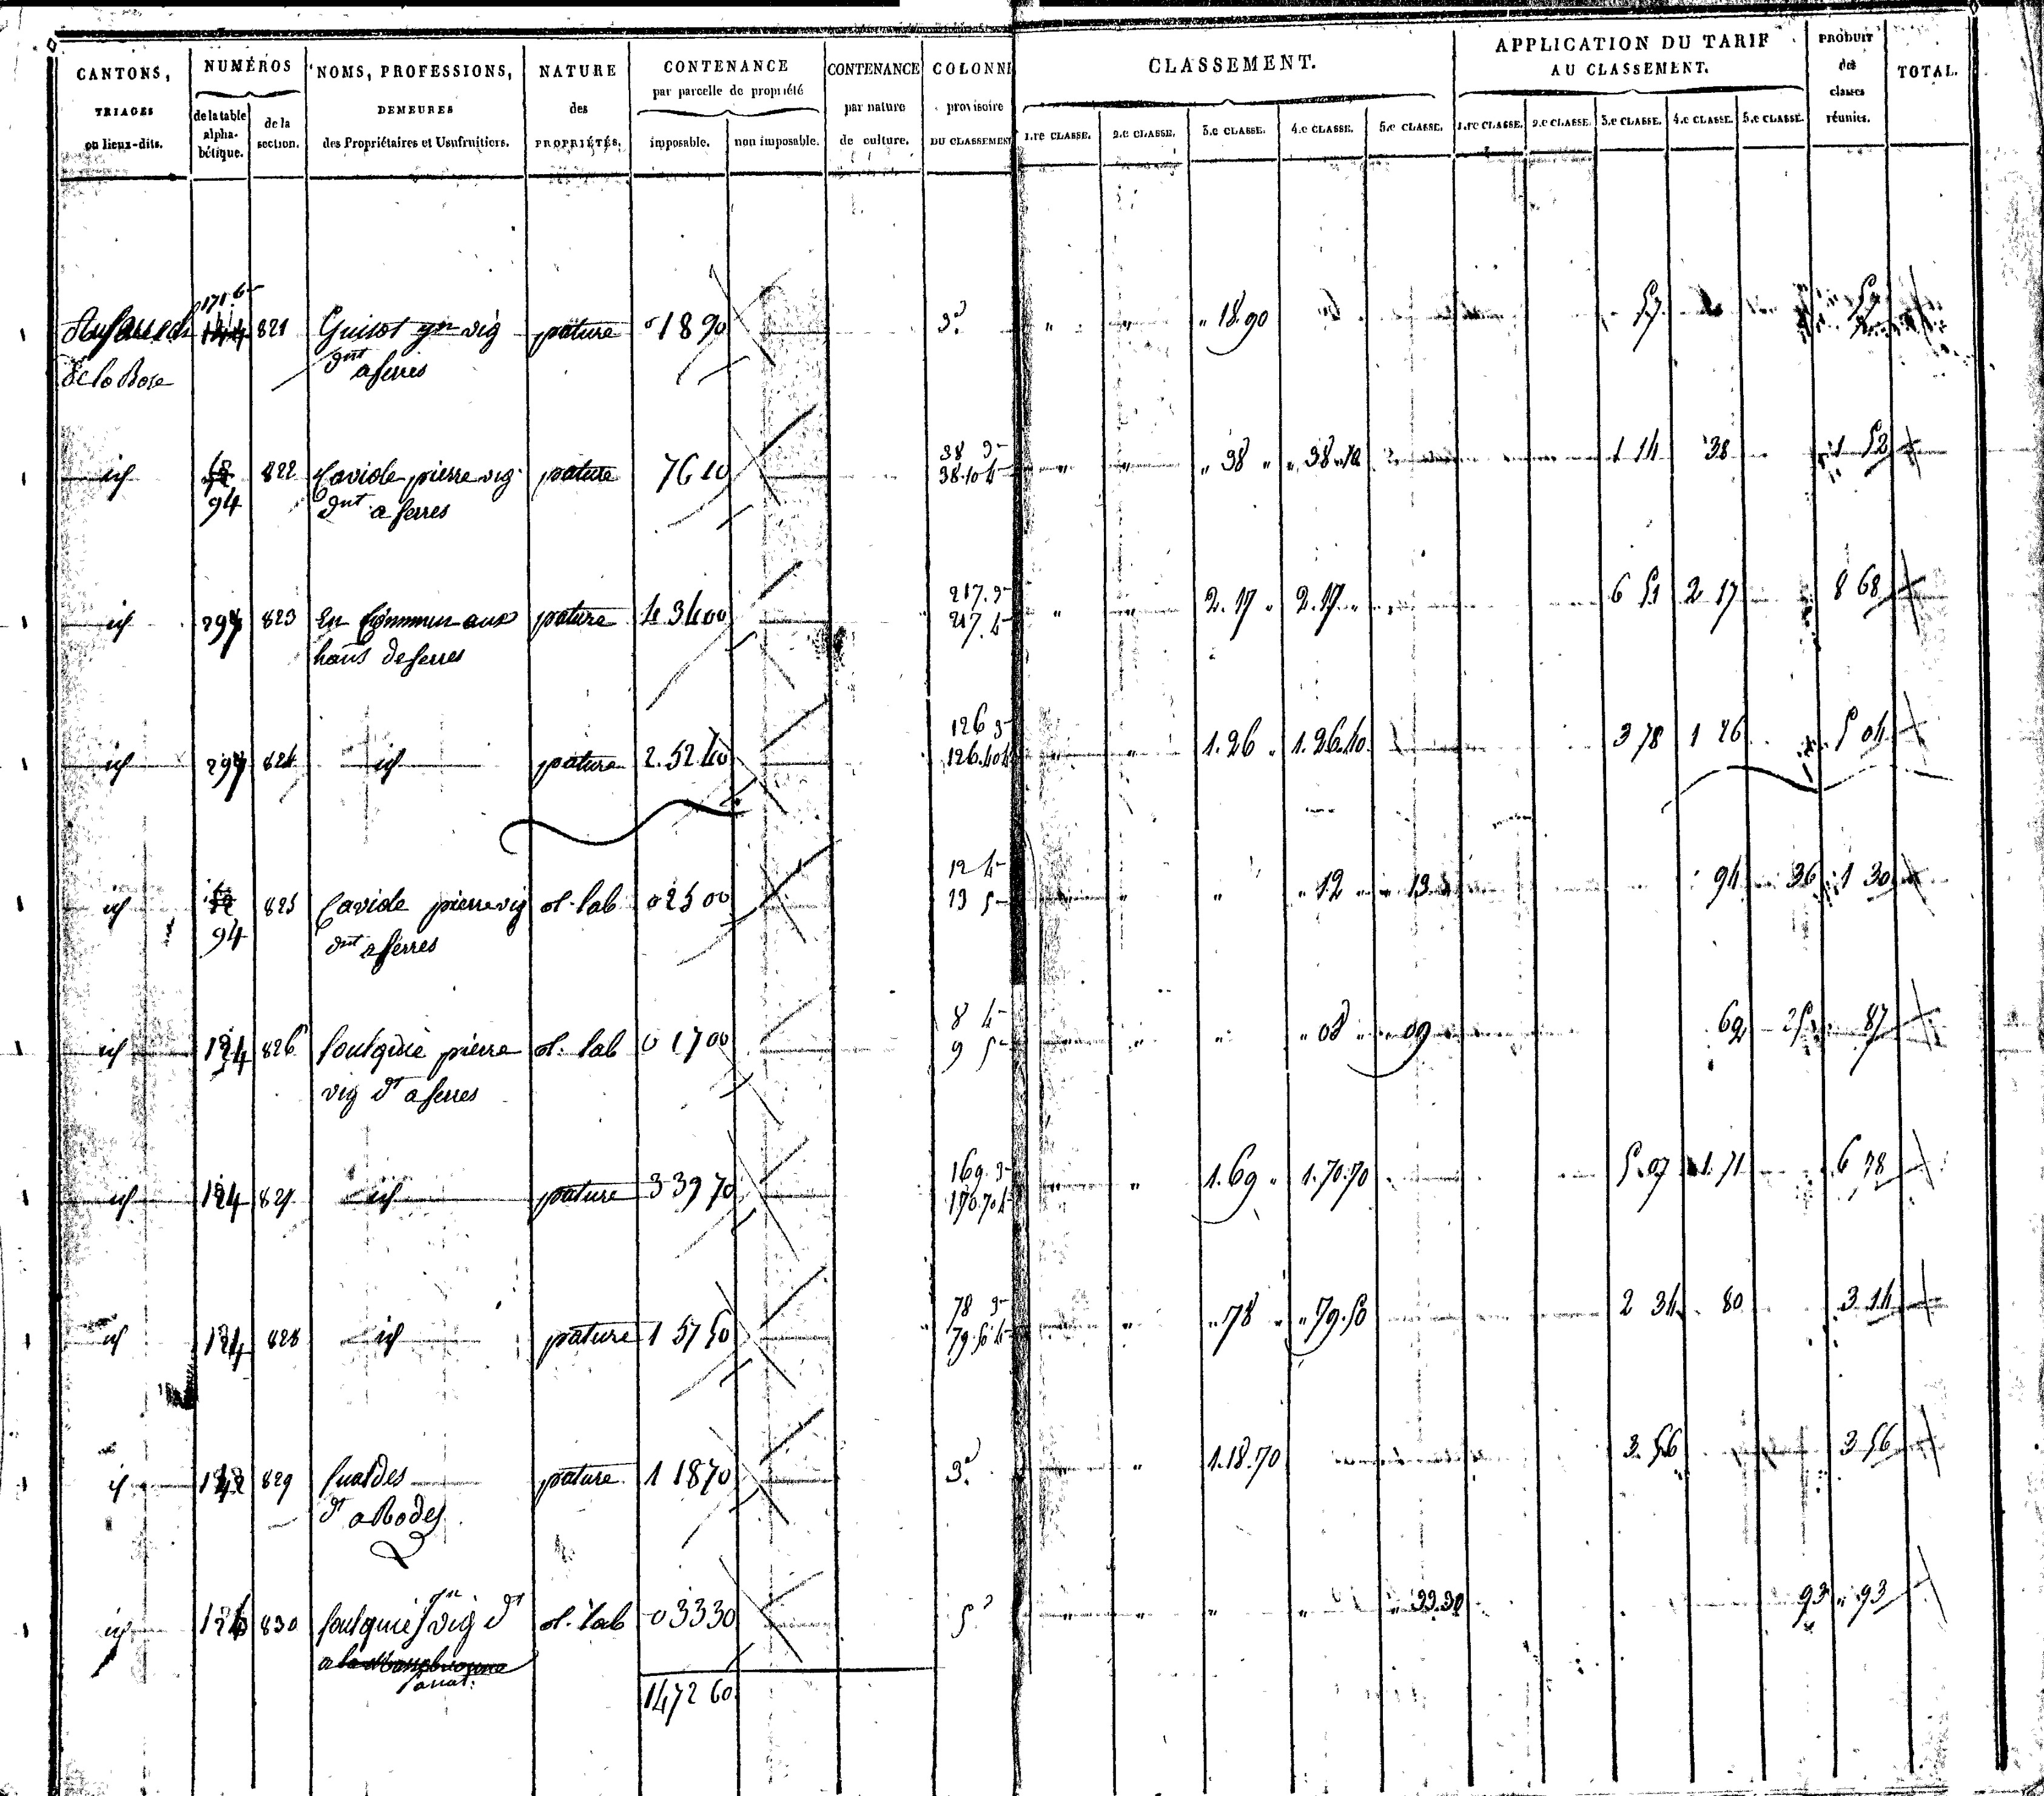 CANTONS, TRIAGES ou lieux-dits. NUMÉROS de la table alpha-bétique. de la section. NOMS, PROFESSIONS, DEMEURES des Propriétaires et Usufruitiers. NATURE des PROPRIÉTÉS. CONTENANCE par parcelle de propriété imposable. non imposable. CONTENANCE par nature de culture. COLONNE provisoire DU CLASSEMENT
CLASSEMENT. 1.re CLASSE. 2.e CLASSE. 3.e CLASSE. 4.e CLASSE. 5.e CLASSE. APPLICATION DU TARIF AU CLASSEMENT. 1.re CLASSE. 2.e CLASSE. 3.e CLASSE. 4.e CLASSE. 5.e CLASSE. PRODUIT des classes réunies. TOTAL.
171
144 821 Guisot jn vig pature 0 18 90 3e " " " 18.90 57 57
de la Bore dnt a serres
id 822 Caviole pierre vig pature 76 10 38 3- " " " 38 " " 38.10 1 14 38 1 52
94 dnt a serres 38.10 4-
id 297 823 En Commun aux pature 4 34 00 217.3- " " 2.17 " 2.17 " 6 51 2 17 8 68
hans de serres 217.4-
id 297 824 id pature 2.52 40 126 3- " " 1.26 " 1.26.40 3 78 1 26 5 04
126.40 4
id 825 Caviole pierre vig ol. lab 0 25 00 12 4- " " " " 12 " " 13 94 36 1 30
94 dnt a serres 13 5-
id 124 826 foulquié pierre ol. lab 0 17 00 8 4- " " " 08 " " 09 62 25 87
vig dt a serres 9 5-
id 124 827 id pature 3 39 70 169.3- " " 1.69 " 1.70.70 5.07 1.71 6 78
170.70 4
id 124 828 id pature 1 57 50 78 3- " " 78 " " 79.50 2 34 80 3 14
79.50 4-
id 142 829 fualdes pature 1 18 70 3e " 1.18.70 3.56 3 56
dt a Rodes
id 830 foulquié jn vig dt ol. lab 0 33 30 5e " " " " " 33.30 93 " 93
a
14 72 60